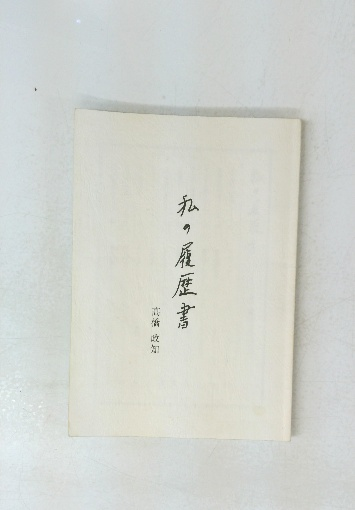 私の履歴書
高橋政知